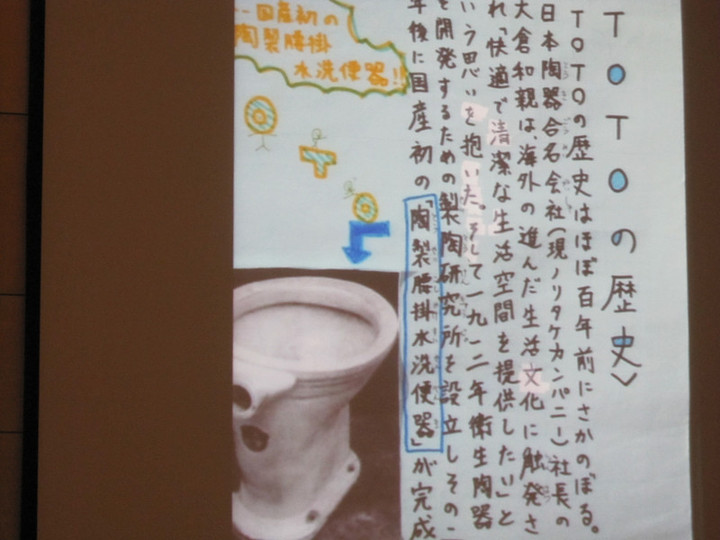 TOTOの歴史〉
TOTOの歴史はほぼ百年前にさかのぼる。
日本陶器合名会社(現ノリタケカンパニー)社長の
大倉和親は、海外の進んだ生活文化に触発さ
れ「快適で清潔な生活空間を提供したい」と
いう思いを抱いた。そして一九一二年衛生陶器
を開発するための製陶研究所を設立しその一
年後に国産初の「陶製腰掛水洗便器」が完成
国産初の
陶製腰掛
水洗便器!!